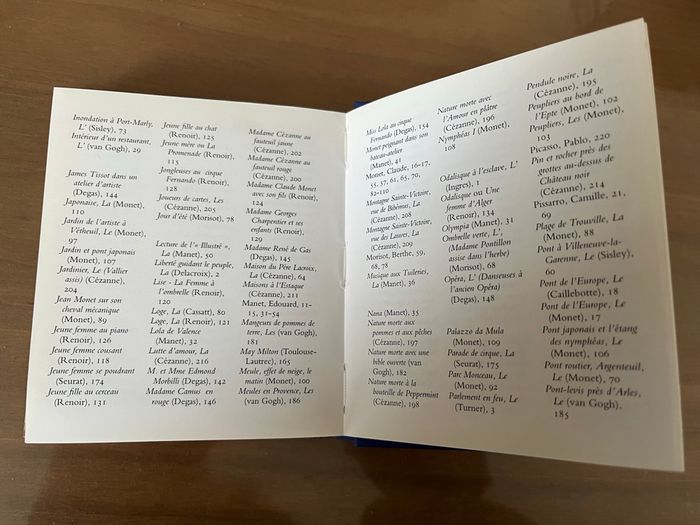 Inondation à Port-Marly,
L' (Sisley), 73
Intérieur d'un restaurant,
L' (van Gogh), 29
James Tissot dans un
atelier d'artiste
(Degas), 144
Japonaise, La (Monet),
110
Jardin de l'artiste à
Vétheuil, Le (Monet),
97
Jardin et pont japonais
(Monet), 107
Jardinier, Le (Vallier
assis) (Cézanne),
204
Jean Monet sur son
cheval mécanique
(Monet), 89
Jeune femme au piano
(Renoir), 126
Jeune femme cousant
(Renoir), 118
Jeune femme se poudrant
(Seurat), 174
Jeune fille au cerceau
(Renoir), 131
Jeune fille au chat
(Renoir), 125
Jeune mère ou La
Promenade (Renoir),
115
Jongleuses au cirque
Fernando (Renoir),
128
Joueurs de cartes, Les
(Cézanne), 205
Jour d'été (Morisot), 78
Lecture de l'« Illustré »,
La (Manet), 50
Liberté guidant le peuple,
La (Delacroix), 2
Lise - La Femme à
l'ombrelle (Renoir),
120
Loge, La (Cassatt), 80
Loge, La (Renoir), 121
Lola de Valence
(Manet), 32
Lutte d'amour, La
(Cézanne), 216
M. et Mme Edmond
Morbilli (Degas), 142
Madame Camus en
rouge (Degas), 146
Madame Cézanne au
fauteuil jaune
(Cézanne), 202
Madame Cézanne au
fauteuil rouge
(Cézanne), 200
Madame Claude Monet
avec son fils (Renoir),
124
Madame Georges
Charpentier et ses
enfants (Renoir),
129
Madame René de Gas
(Degas), 145
Maison du Père Lacroix,
La (Cézanne), 64
Maisons à l'Estaque
(Cézanne), 211
Manet, Edouard, 11-
15, 31-54
Mangeurs de pommes de
terre, Les (van Gogh),
181
May Milton (Toulouse-
Lautrec), 165
Meule, effet de neige, le
matin (Monet), 100
Meules en Provence, Les
(van Gogh), 186
Miss Lola au cirque
Fernando (Degas), 154
Monet peignant dans son
bateau-atelier
(Manet), 41
Monet, Claude, 16-17,
55, 57, 61, 65, 70,
82-110
Montagne Sainte-Victoire,
vue de Bibémus, La
(Cézanne), 208
Montagne Sainte-Victoire,
vue des Lauves, La
(Cézanne), 209
Morisot, Berthe, 59,
68, 78
Musique aux Tuileries,
La (Manet), 36
Nana (Manet), 35
Nature morte aux
pommes et aux pêches
(Cézanne), 197
Nature morte avec une
bible ouverte (van
Gogh), 182
Nature morte à la
bouteille de Peppermint
(Cézanne), 198
Nature morte avec
l'Amour en plâtre
(Cézanne), 196
Nymphéas I (Monet),
108
Odalisque à l'esclave, L'
(Ingres), 1
Odalisque ou Une
femme d'Alger
(Renoir), 134
Olympia (Manet), 31
Ombrelle verte, L',
(Madame Pontillon
assise dans l'herbe)
(Morisot), 68
Opéra, L' (Danseuses à
l'ancien Opéra)
(Degas), 148
Palazzo da Mula
(Monet), 109
Parade de cirque, La
(Seurat), 175
Parc Monceau, Le
(Monet), 92
Parlement en feu, Le
(Turner), 3
Pendule noire, La
(Cézanne), 195
Peupliers au bord de
l'Epte (Monet), 102
Peupliers, Les (Monet),
103
Picasso, Pablo, 220
Pin et rocher près des
grottes au-dessus de
Château noir
(Cézanne), 214
Pissarro, Camille, 21,
69
Plage de Trouville, La
(Monet), 88
Pont à Villeneuve-la-
Garenne, Le (Sisley),
60
Pont de l'Europe, Le
(Caillebotte), 18
Pont de l'Europe, Le
(Monet), 17
Pont japonais et l'étang
des nymphéas, Le
(Monet), 106
Pont routier, Argenteuil,
Le (Monet), 70
Pont-levis près d'Arles,
Le (van Gogh),
185